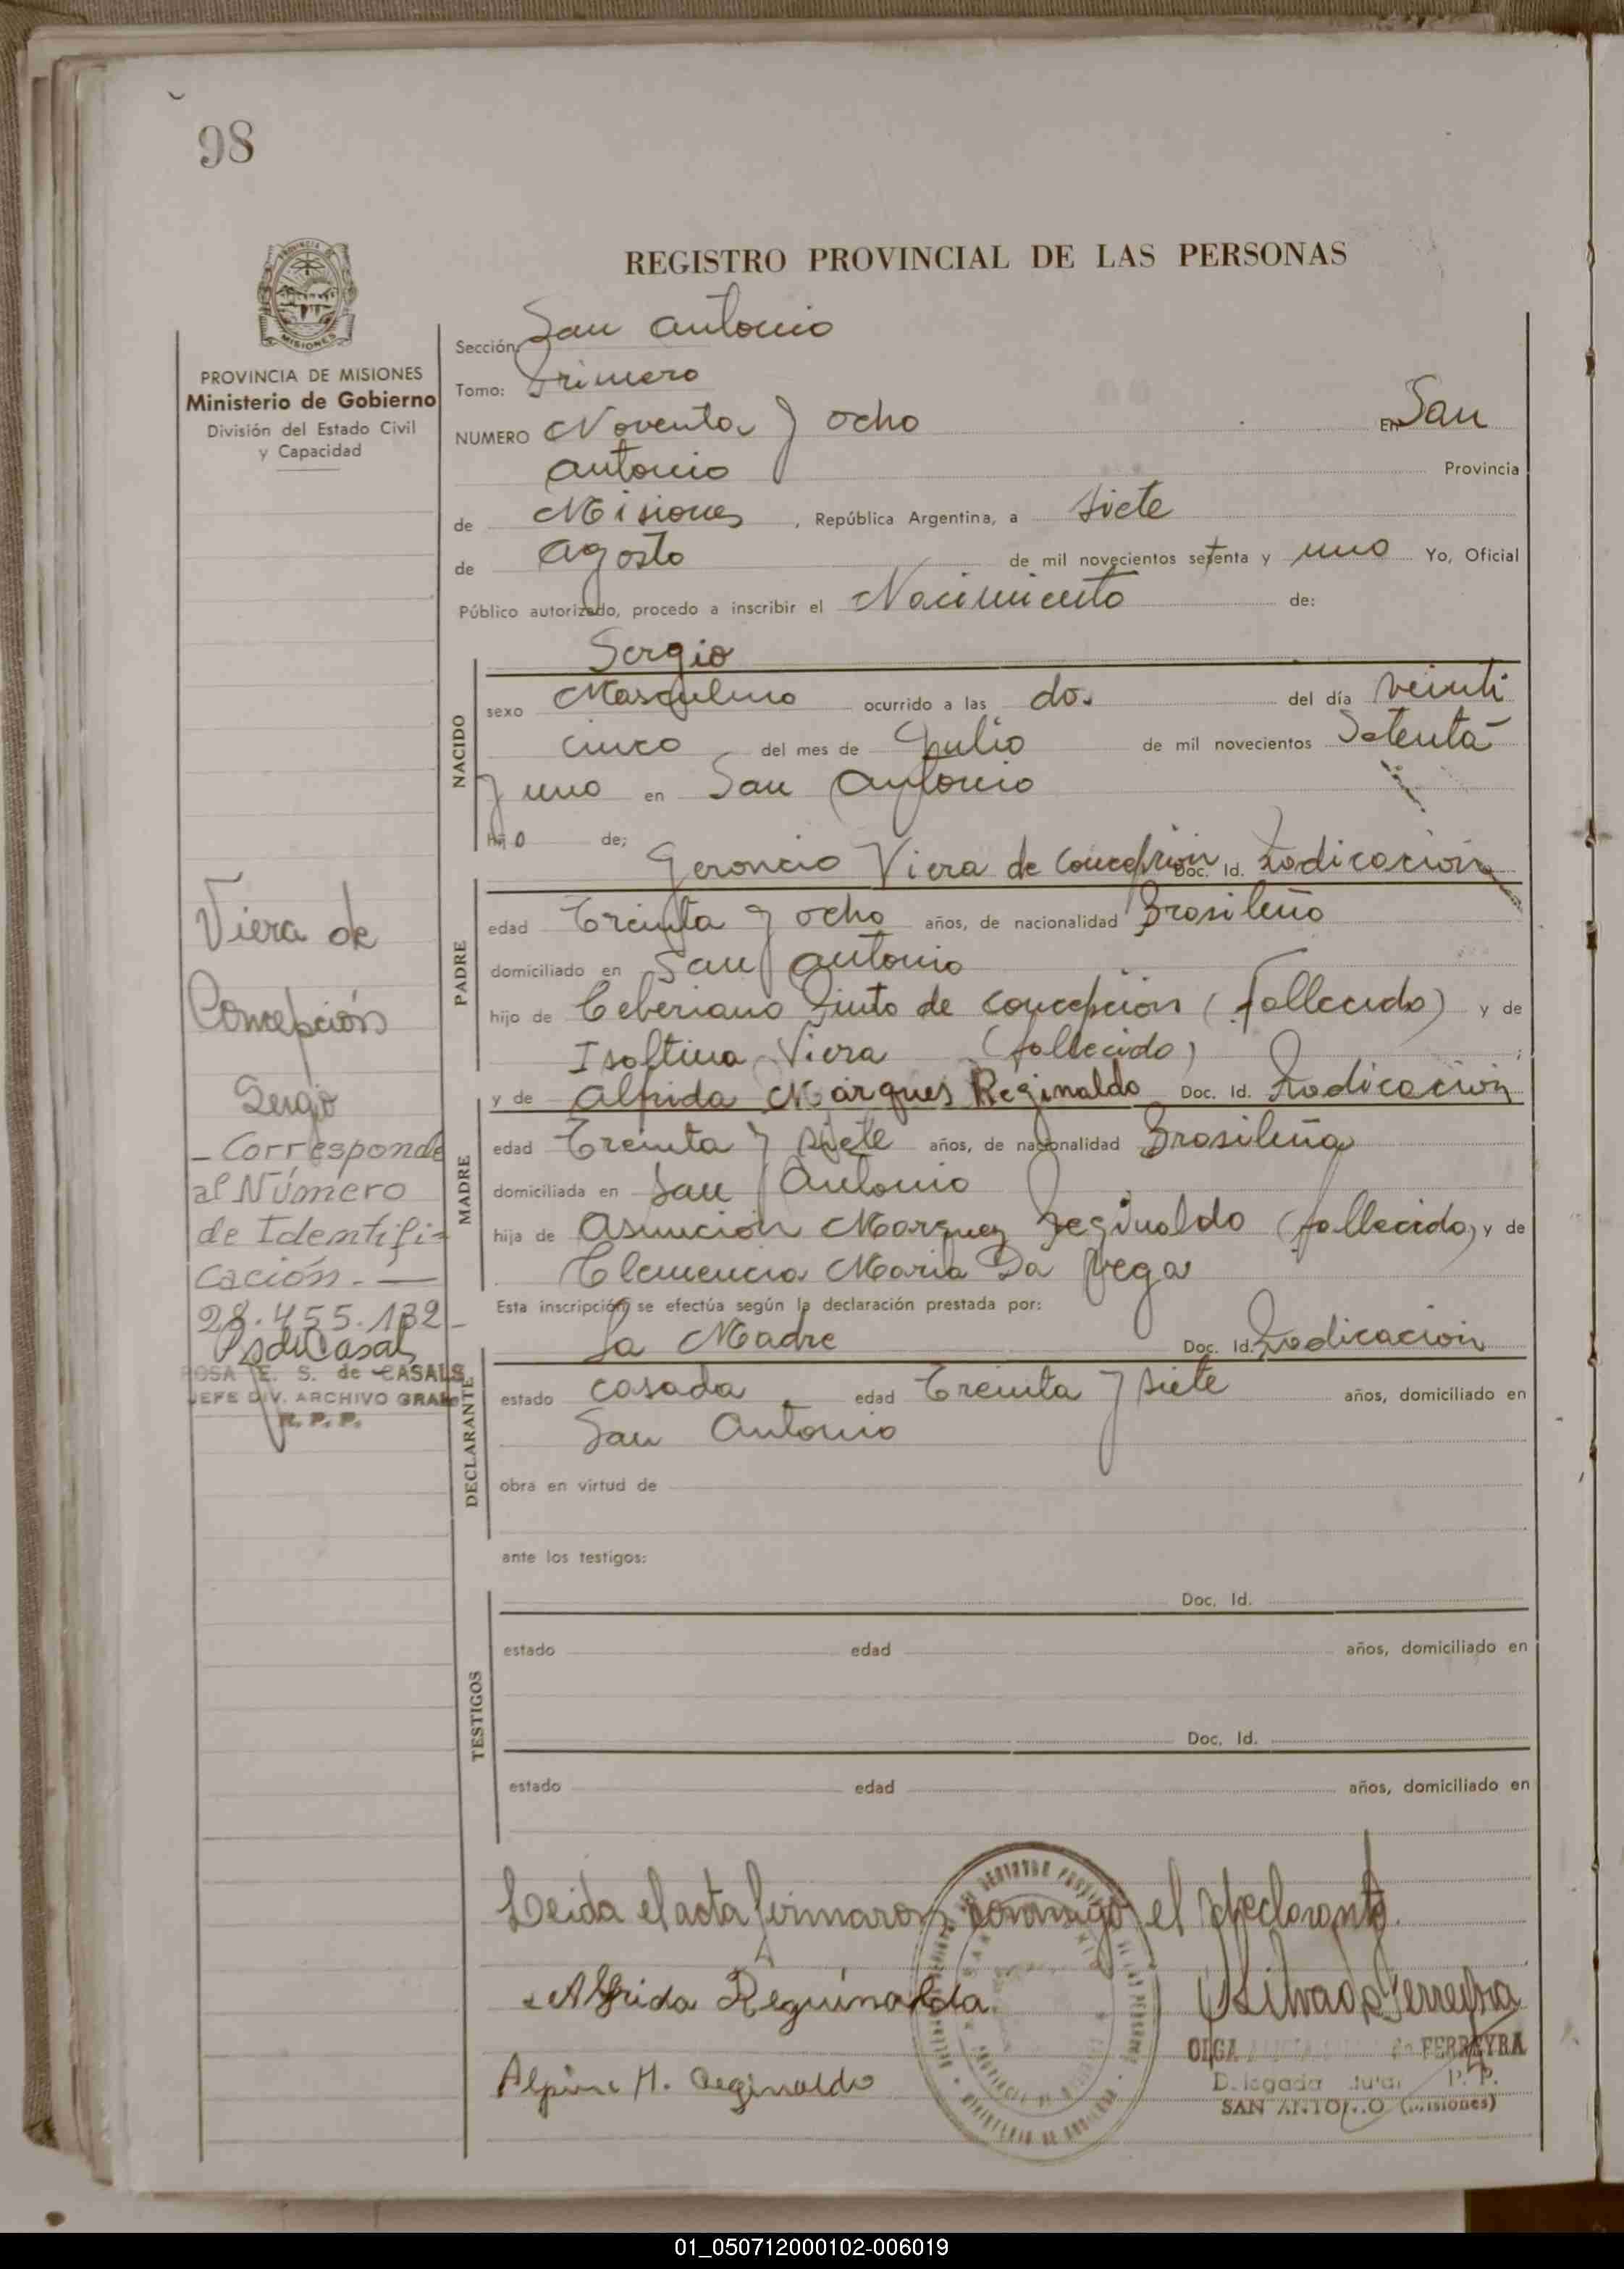 98
REGISTRO PROVINCIAL DE LAS PERSONAS
PROVINCIA DE MISIONES
Ministerio de Gobierno
División del Estado Civil
y Capacidad
Sección: San Antonio
Tomo: Primero
NUMERO Noventa y ocho EN San
Antonio Provincia
de Misiones, República Argentina, a siete
de agosto de mil novecientos setenta y uno Yo, Oficial
Público autorizado, procedo a inscribir el Nacimiento de:
Sergio
NACIDO
sexo Masculino ocurrido a las dos del día veinti
cinco del mes de Julio de mil novecientos Setenta
y uno en San Antonio
hijo de;
Geroncio Viera de Concepción Doc. Id. Radicación
PADRE
edad Treinta y ocho años, de nacionalidad Brasileño
domiciliado en San Antonio
hijo de Ceberiano Pinto de Concepción (fallecido) y de
Isoltina Viera (fallecida);
y de Alfrida Marques Reginaldo Doc. Id. Radicación
MADRE
edad Treinta y siete años, de nacionalidad Brasileña
domiciliada en San Antonio
hija de Asunción Marquez Reginaldo (fallecido) y de
Clemencia Maria Da Vega
Esta inscripción se efectúa según la declaración prestada por:
La Madre Doc. Id. Radicación
DECLARANTE
estado casada edad Treinta y siete años, domiciliado en
San Antonio
obra en virtud de
ante los testigos:
Doc. Id.
TESTIGOS
estado edad años, domiciliado en
Doc. Id.
estado edad años, domiciliado en
Viera de
Concepción
Sergio
- Corresponde
al Número
de Identifi-
cación. —
28.455.132-
ROSA E. S. de CASALS
JEFE DIV. ARCHIVO GRAL.
R. P. P.
Leida el acta firmaron conmigo el declarante.
Alfrida Reguinalda
OLGA de FERREYRA
Delegada Titular R. P. P.
SAN ANTONIO (Misiones)
H. Reginaldo
01_050712000102-006019